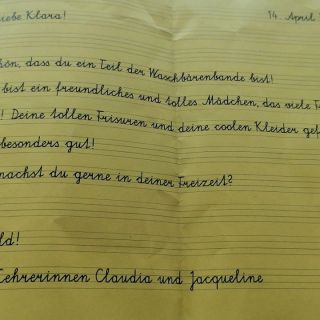 iebe Klara! 14. April
hön, dass du ein Teil der Waschbärenbande bist!
bist ein freundliches und tolles Mädchen, das viele F
! Deine tollen Frisuren und deine coolen Kleider gef
besonders gut!
machst du gerne in deiner Freizeit?
ld!
Lehrerinnen Claudia und Jacqueline